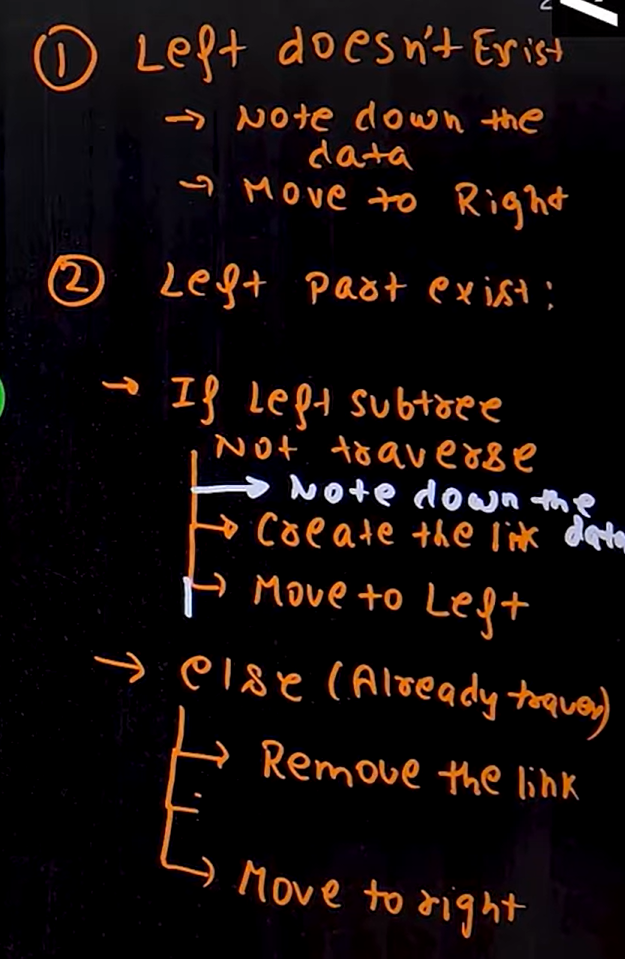 ① Left doesn't Exist
→ Note down the
data
→ Move to Right
② Left part exist:
→ If Left subtree
Not traverse
→ Note down the
→ Create the link data
→ Move to Left
→ else (Already traver)
→ Remove the link
→ Move to right